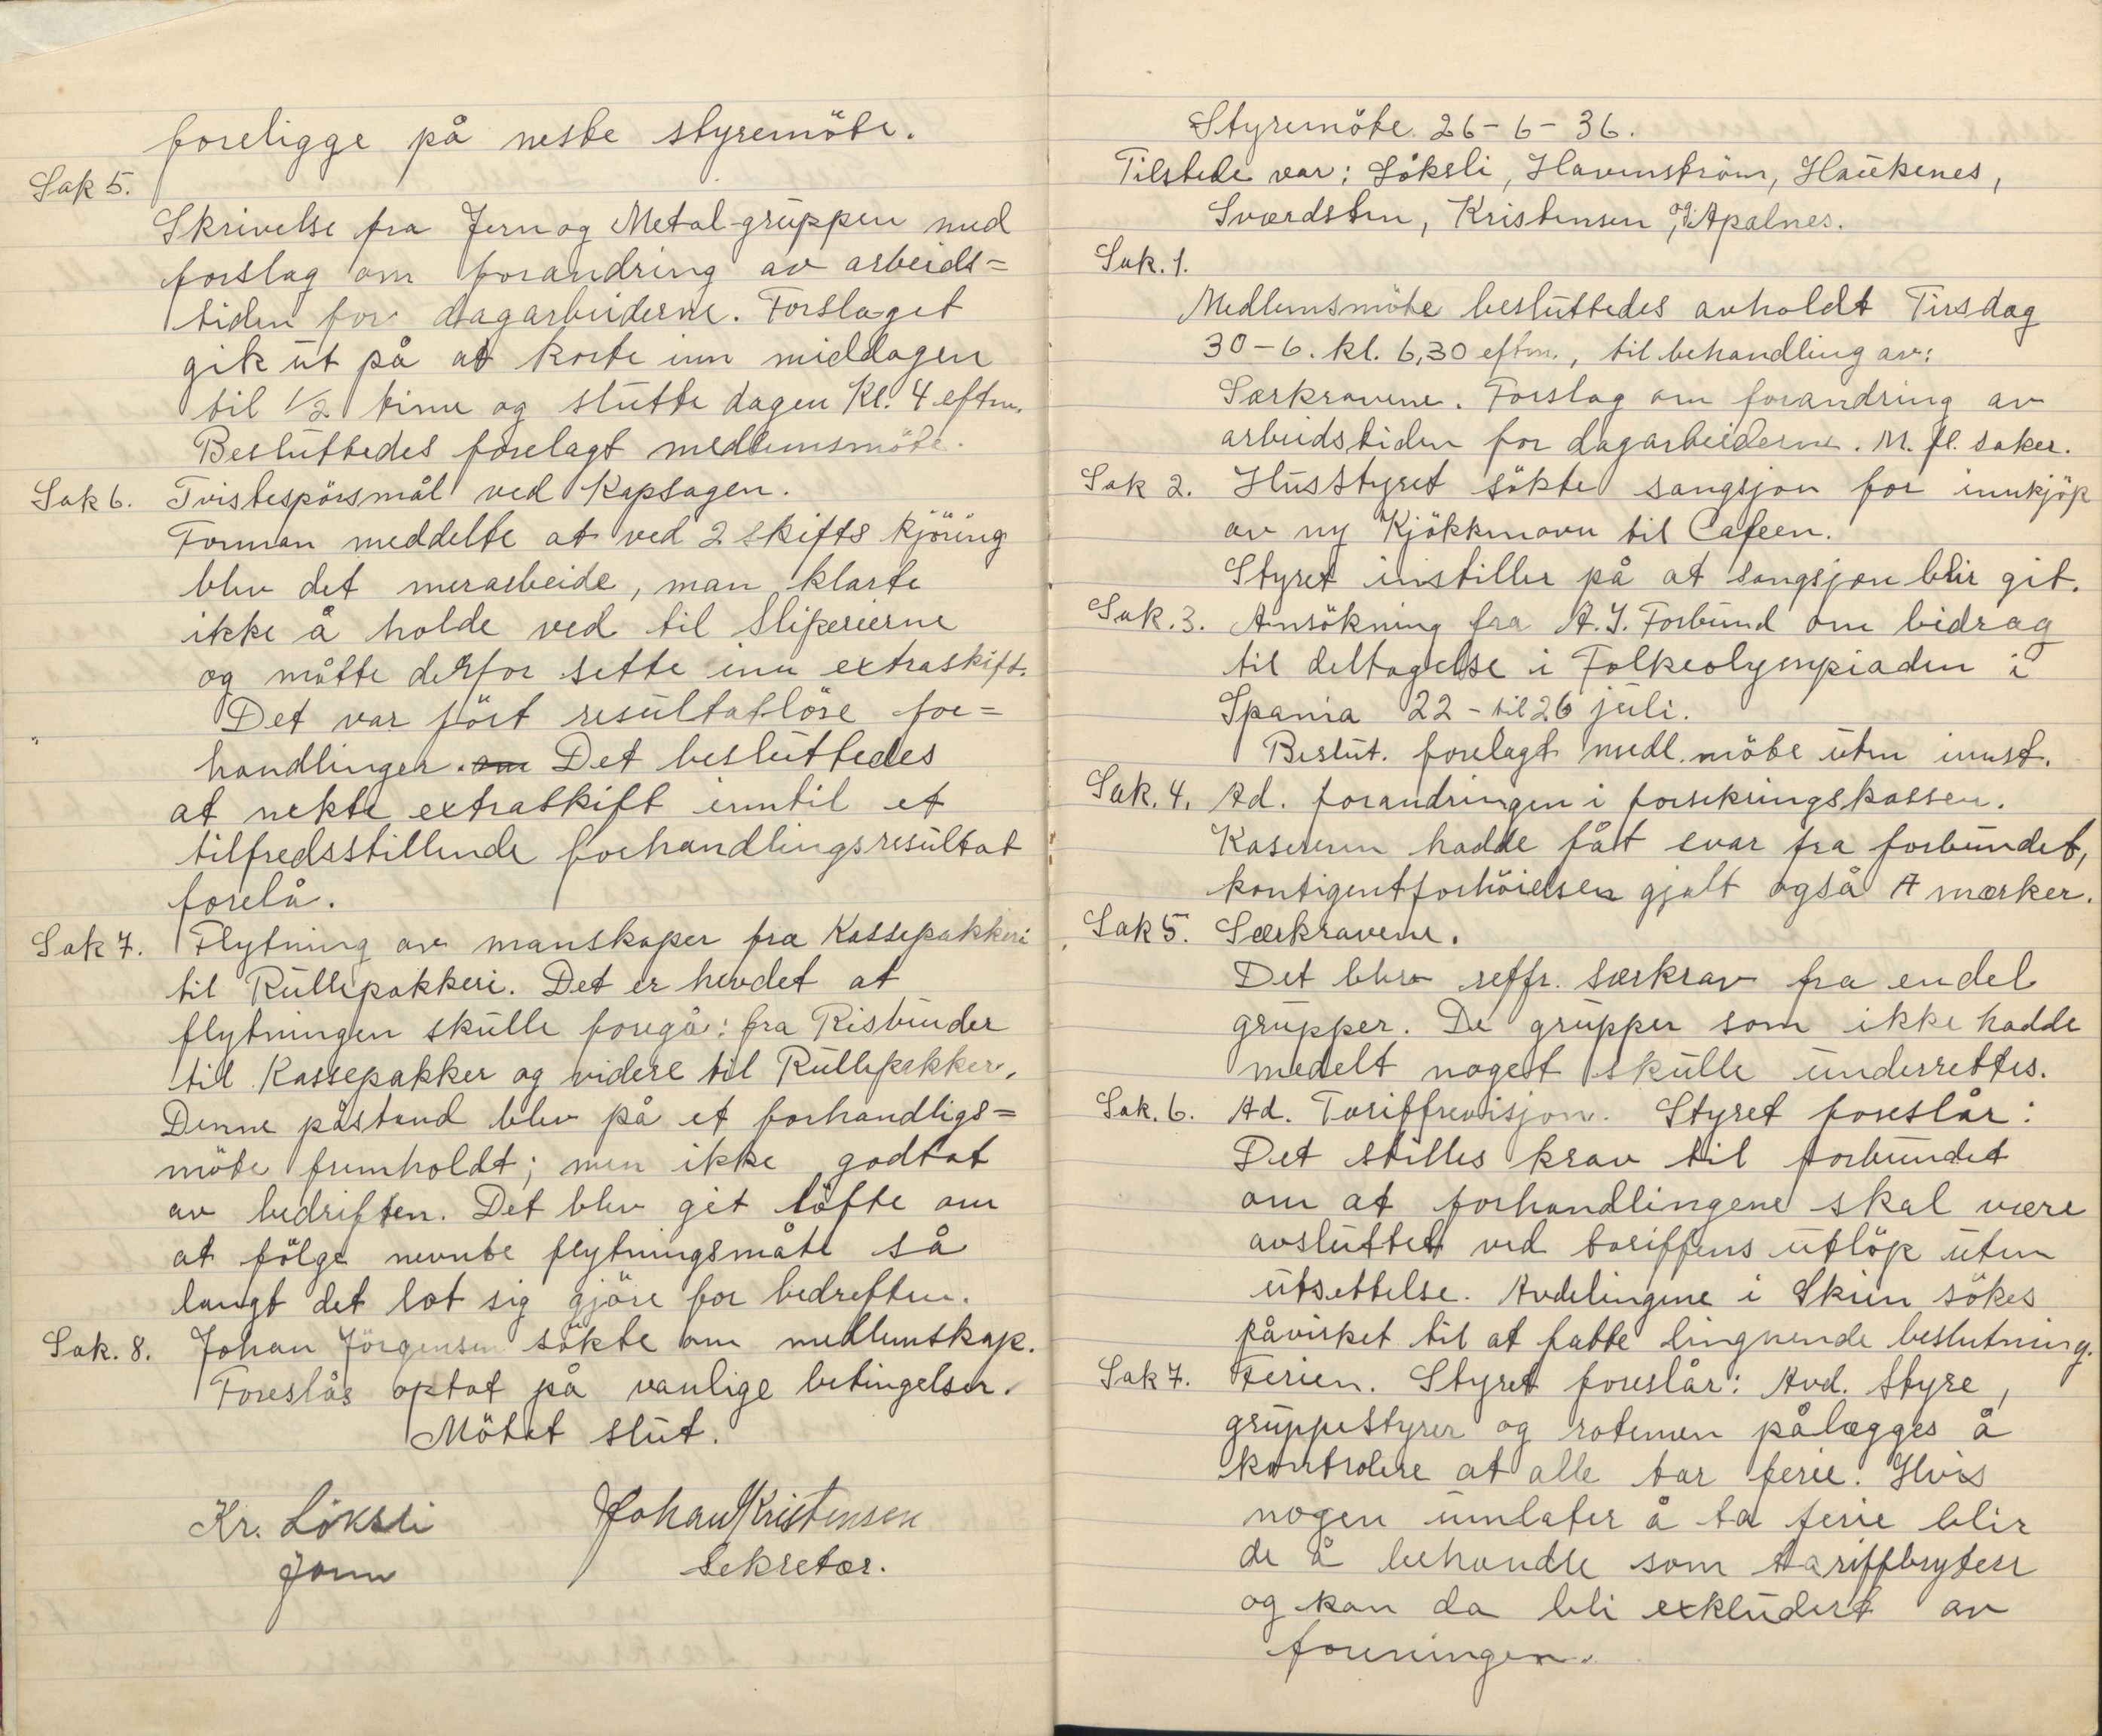 foreligge på neste styremöte.
Sak 5.
Skrivelse fra Jern og Metal-gruppen med
forslag om forandring av arbeids=
tiden for dagarbeiderne. Forslaget
gik ut på at korte inn middagen
til 1/2 time og slutte dagen Kl. 4 eftm.
Besluttedes forelagt medlemsmöte.
Sak 6. Tvistespörsmål ved Kapsagen.
Forman meddelte at ved 2 skifts kjöring
blev det merarbeide, man klarte
ikke å holde ved til Sliperierne
og måtte derfor sette inn extraskift.
Det var fört resultatlöse for=
handlinger. om Det besluttedes
at nekte extraskift inntil et
tilfredsstillende forhandlingsresultat
forelå.
Sak 7. Flytning av manskaper fra Kassepakkeri
til Rullepakkeri. Det er hevdet at
flytningen skulle foregå: fra Risbinder
til Kassepakker og videre til Rullepakker.
Denne påstand blev på et forhandligs=
möte fremholdt; men ikke godtat
av bedriften. Det blev git löfte om
at fölge nevnte flytningsmåte så
langt det lot sig gjöre for bedreften.
Sak. 8. Johan Jörgensen sökte om medlemskap.
Foreslås optat på vanlige betingelser.
Mötet slut.
Kr. Löksli Johan Kristensen
form Sekretær.
Styremöte 26-6-36.
Tilstede var: Löksli, Havenström, Haukenes,
Sværdsten, Kristensen, og Apalnes.
Sak. 1.
Medlemsmöte besluttedes avholdt Tirsdag
30-6. kl. 6,30 eftm., til behandling av:
Særkravene. Forslag om forandring av
arbeidstiden for dagarbeiderne. M. fl. saker.
Sak 2. Husstyret sökte sangsjon for innkjöp
av ny Kjökkenovn til Cafeen.
Styret instiller på at sangsjon blir git.
Sak. 3. Ansökning fra A.I. Forbund om bidrag
til deltagelse i Folkeolympiaden i
Spania 22 - til 26 juli.
Beslut. forelagt medl. möte uten innst.
Sak. 4. Ad. forandringen i forsikringskassen.
Kasereren hadde fåt svar fra forbundet,
kontigentforhöielsen gjalt også A mærker.
Sak 5. Særkravene.
Det blev reffr. særkrav fra endel
grupper. De grupper som ikke hadde
medelt noget skulle underrettes.
Sak. 6. Ad. Tariffrevisjon. Styret foreslår:
Det stilles krav til forbundet
om at forhandlingene skal være
avsluttet ved tariffens utlöp uten
utsettelse. Avdelingene i Skien sökes
påvirket til at fatte lingnende beslutning.
Sak 7. Ferien. Styret foreslår: Avd. styre,
gruppestyrer og rotemen pålægges å
kontrolere at alle tar ferie. Hvis
nogen unnlater å ta ferie blir
de å behandle som tariffbrytere
og kan da bli exkludert av
foreningen.